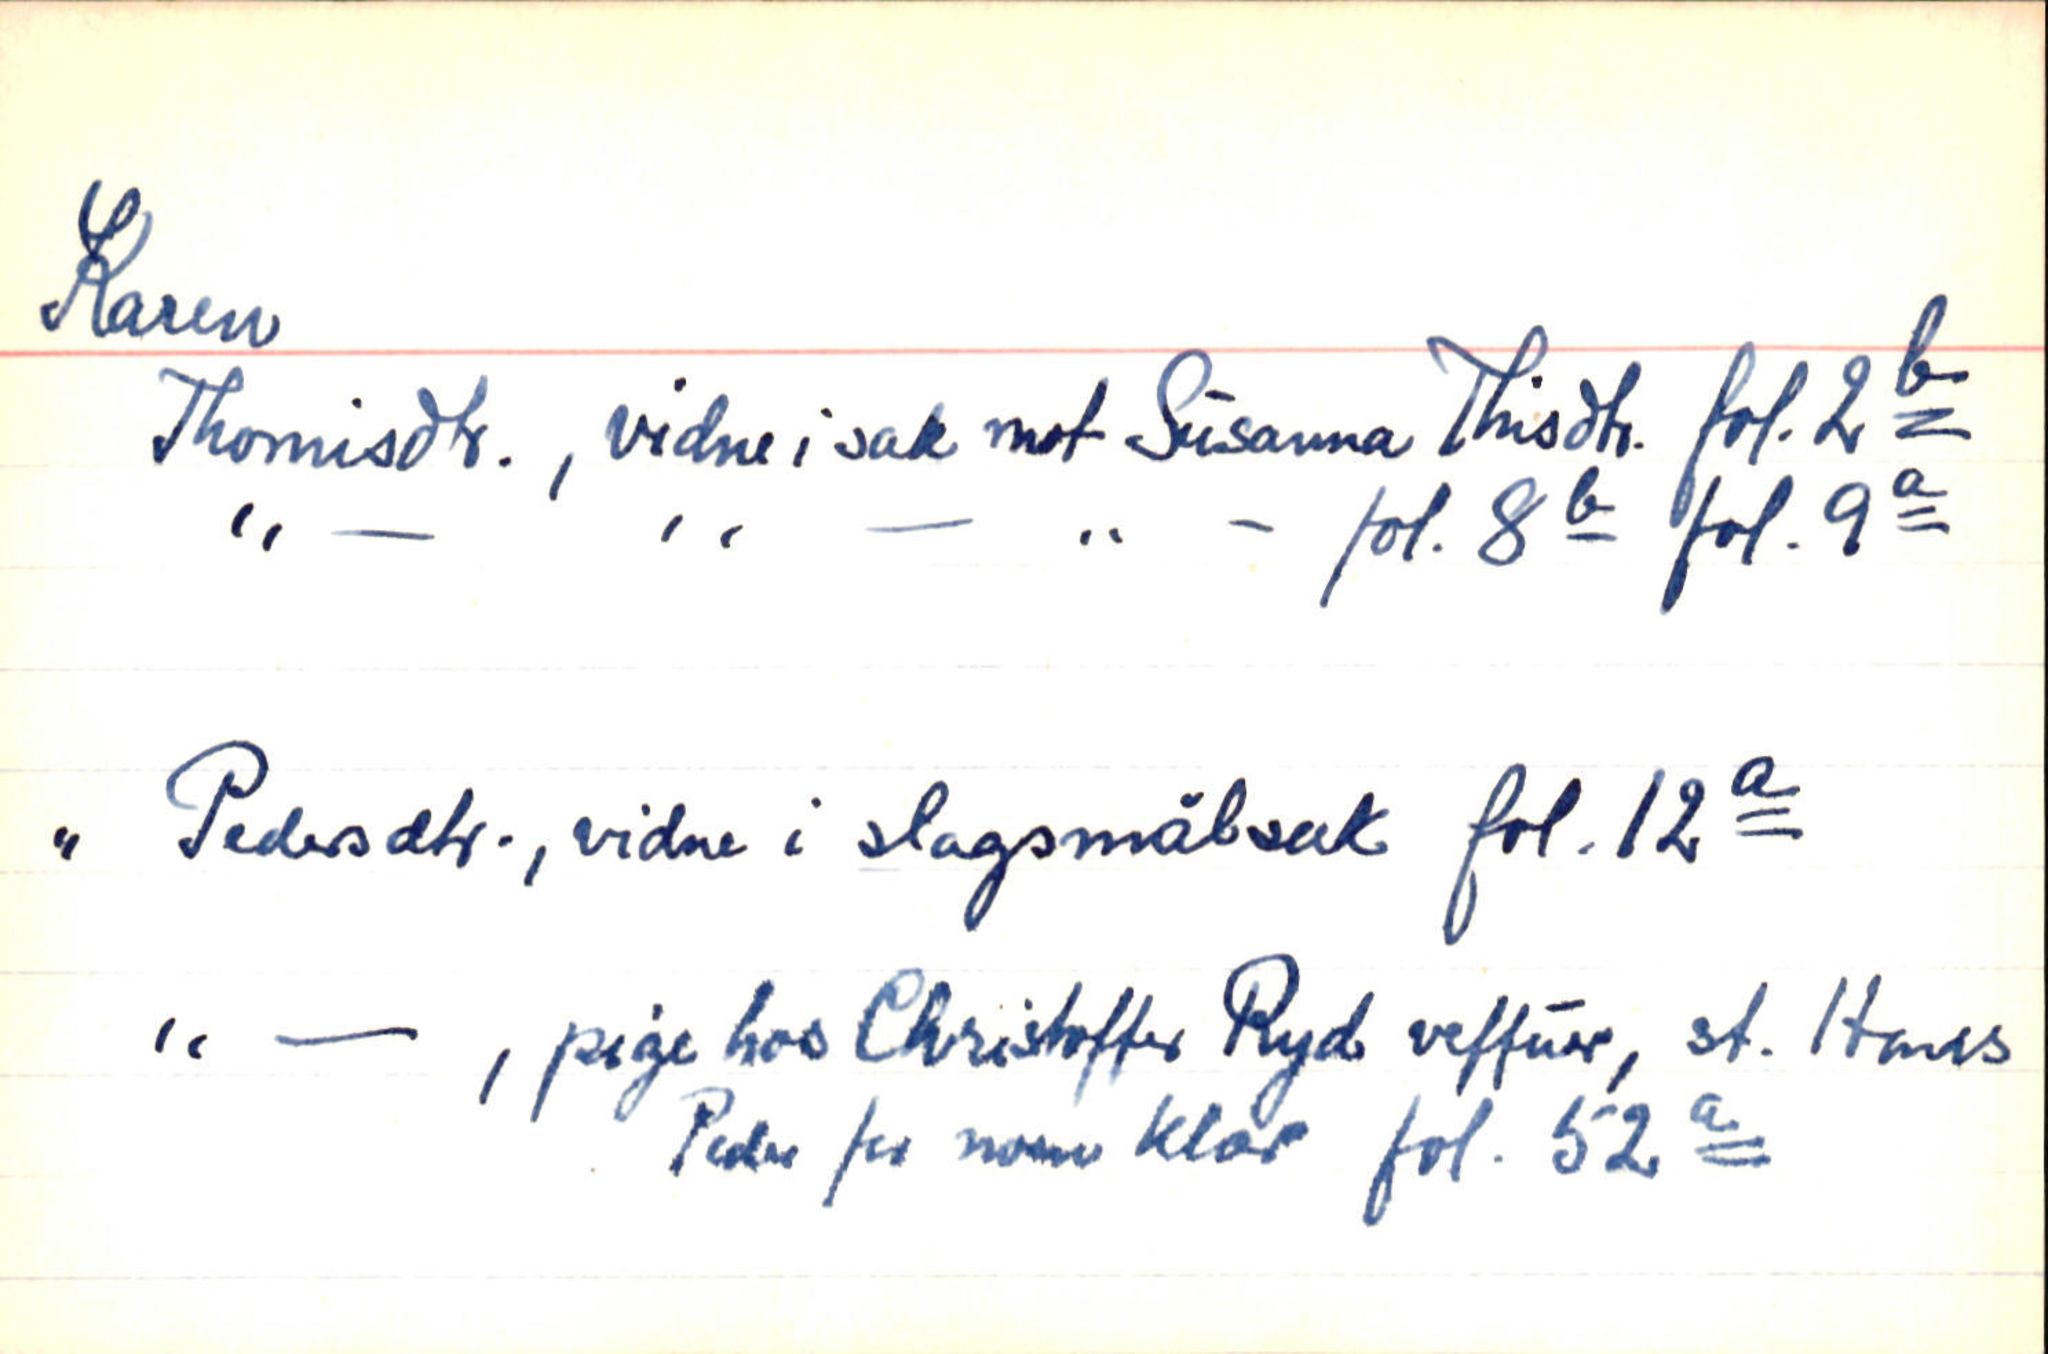 Karen
Thomisdtr., vidne i sak mot Susanna Thisdtr. fol. 2 b
" — " — " - fol. 8 b fol. 9 a
" Pedersdtr., vidne i slagsmålsak fol. 12 a
" — , pige hos Christoffer Ryd st.
Peder klar fol. 52 a